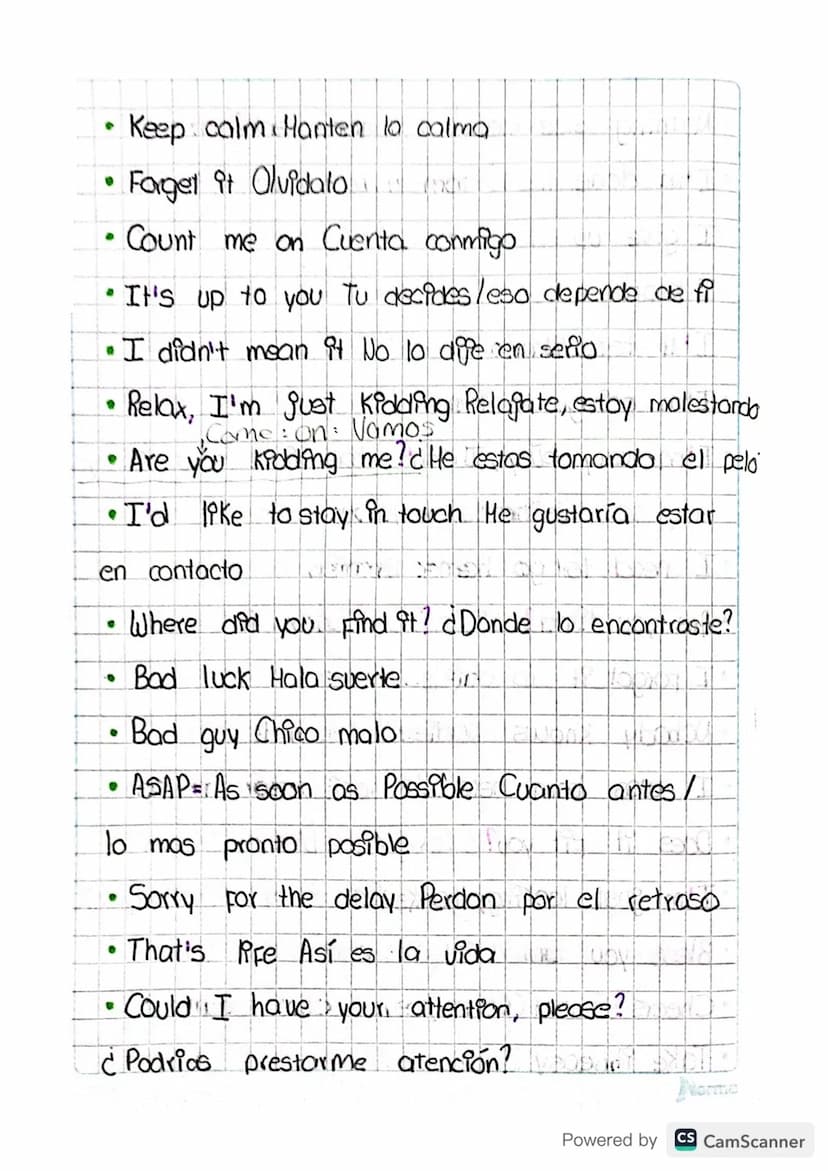 • Keep calm: Manten la calma
• Forget it Olvidalo
• Count me on Cuenta conmigo
• It's up to you Tu decides/eso depende de ti
• I didn't mean it No lo dije en serio
• Relax, I'm just kidding Relajate, estoy molestando
Come : on : Vamos
• Are you kidding me? ¿Me estas tomando el pelo
• I'd like to stay in touch Me gustaría estar
en contacto
• Where did you find it? ¿Donde lo encontraste?
• Bad luck Mala suerte
• Bad guy Chico malo
• ASAP=: As soon as Possible Cuanto antes /
lo mas pronto posible
• Sorry for the delay Perdon por el retraso
• That's life Así es la vida
• Could I have your attention, please?
¿Podrias prestarme atención?
Norma
Powered by CS CamScanner